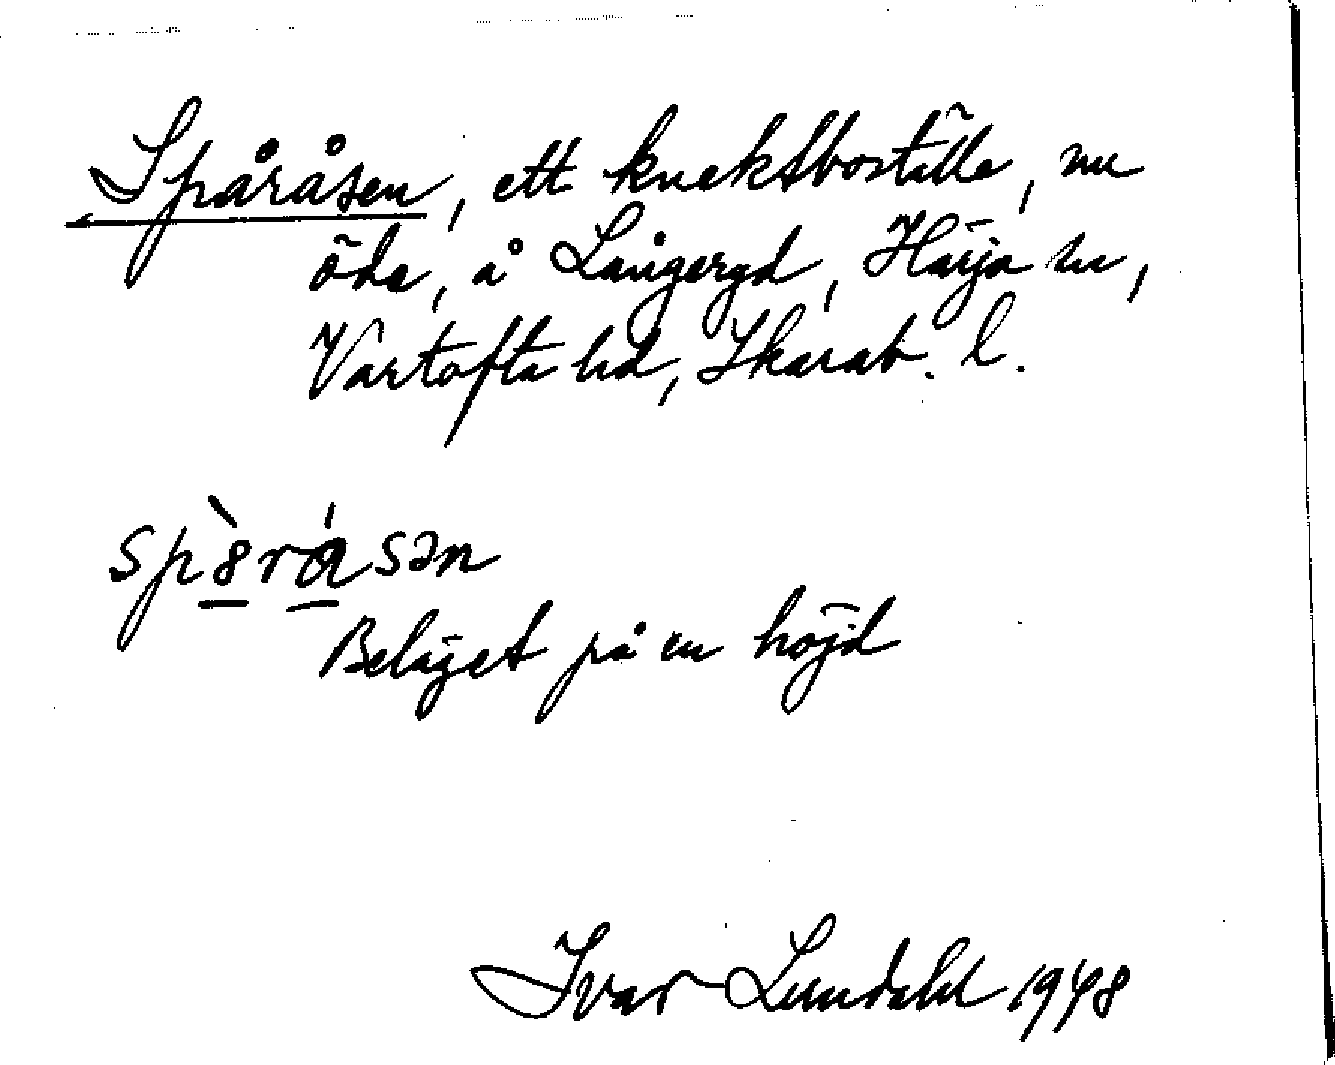 Spåråsen, ett knektboställe, nu
öde, å Långeryd, Härja sn,
Vartofta hd, Skarab. l.
sp8̀rásən
Beläget på en höjd
Ivar Lundahl 1948